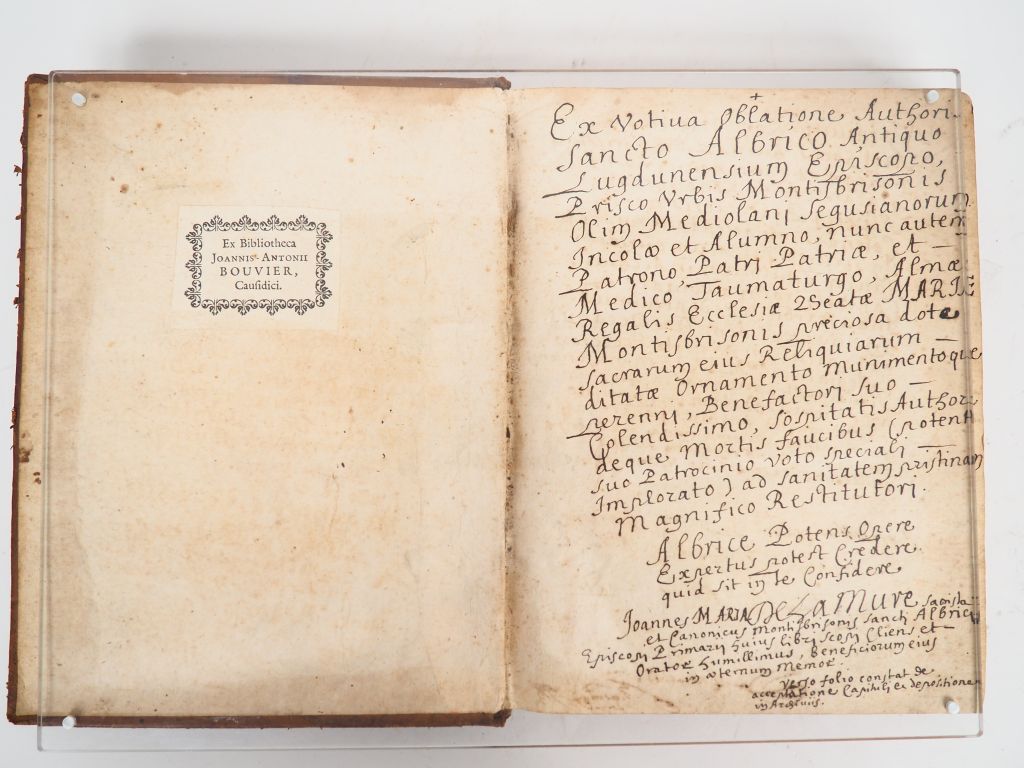 Ex Bibliotheca
JOANNIS-ANTONII
BOUVIER,
Causidici.
Ex Votiva Oblatione Authoris
Sancto Albrico Antiquo
Lugdunensium Episcopo,
Prisco Urbis Montisbrisonis
Olim Mediolani Segusianorum
Incolæ et Alumno, nunc autem
Patrono, Patri Patriæ, et —
Medico Taumaturgo, Almæ
Regalis Ecclesiæ Beatæ MARIÆ
Montisbrisonis preciosa dote
sacrarum eius Reliquiarum —
ditatæ Ornamento Munimentoque
perenni, Benefactori suo —
Splendissimo, Sospitatis Authori
deque Mortis faucibus (potenti
suo Patrocinio voto speciali —
Implorato) ad sanitatem pristinam
Magnifico Restitutori.
Albrice Potens Opere
Expertus potest Credere
quid sit in te Confidere
Joannes MARIA DE LA MURE sacrista
et Canonicus Montisbrisonis Sancti Albrici
Episcopi Primarii huius libri scopi Cliens et —
Orator humillimus, Beneficiorum eius
in æternum Memor.
verso folio constat de
acceptatione Capituli et depositione
in Archivis.